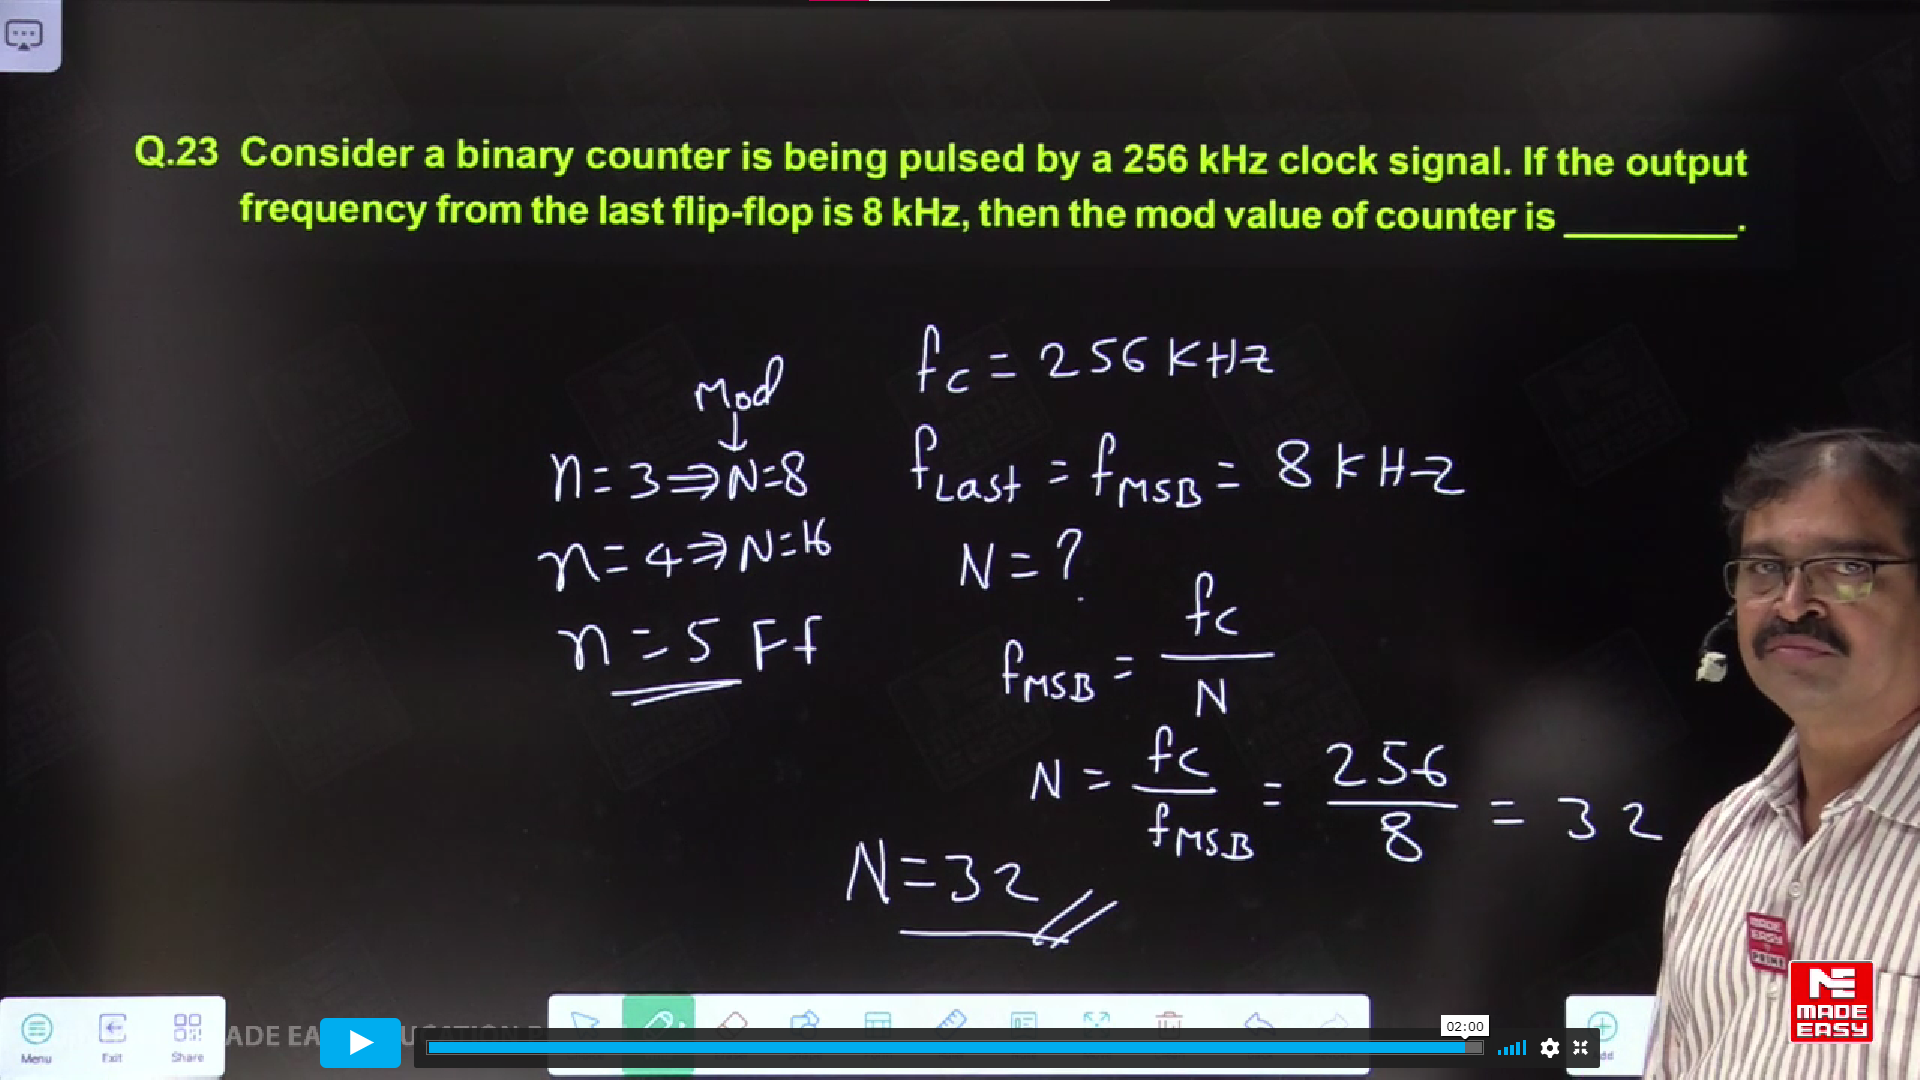 Q.23 Consider a binary counter is being pulsed by a 256 kHz clock signal. If the output
frequency from the last flip-flop is 8 kHz, then the mod value of counter is ________.
Mod
↓
n = 3 ⇒ N=8
n = 4 ⇒ N=16
n = 5 Ff
fc = 256 KHz
fLast = fMSB = 8 KHz
N = ?
fMSB = fc / N
N = fc / fMSB = 256 / 8 = 32
N = 32
MADE
EASY
PRIME
MADE
EASY
Menu
Exit
Share
ADE EA
UCATION
02:00